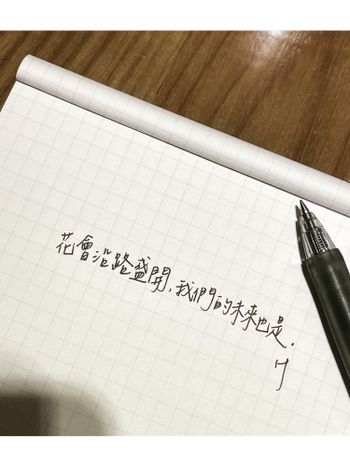 花會沿路盛開，我們的未來也是．